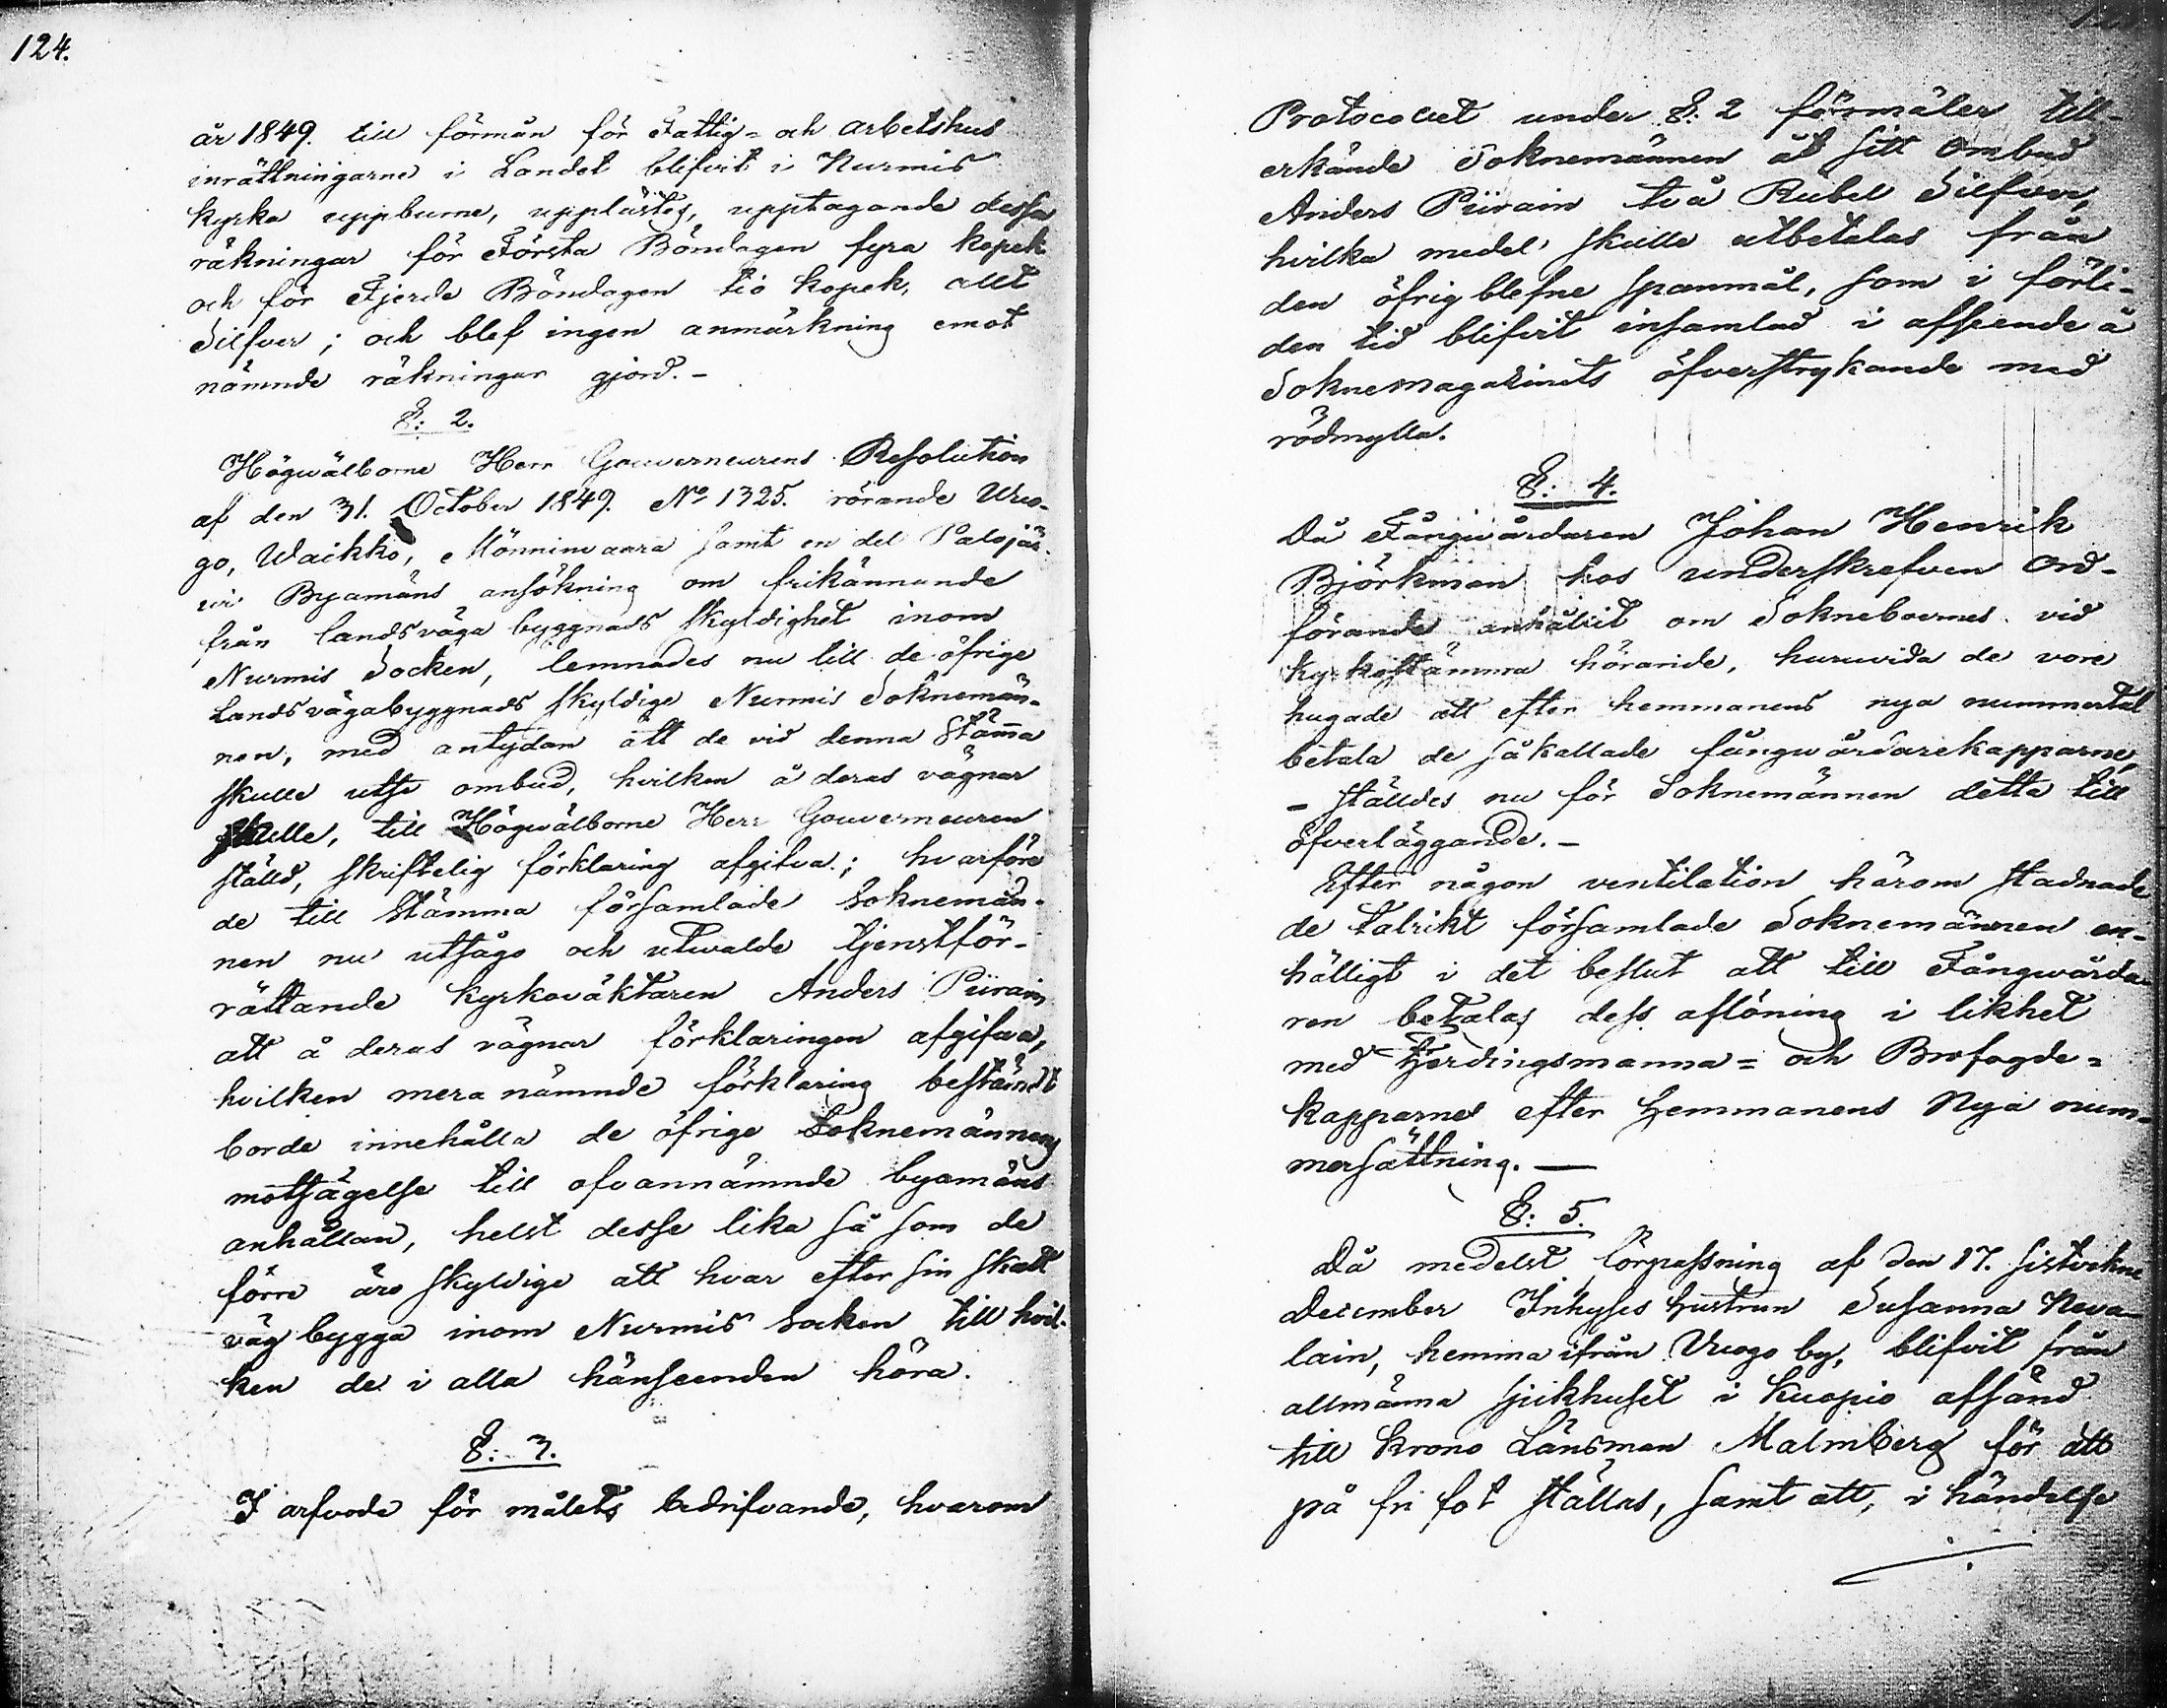 124.
år 1849. till förmån för Fattig- och arbetshus
inrättningarne i Landet blifvit i Nurmis
kyrka uppburne, upplästes, upptagande dessa
räkningar för Första Böndagen fyra kopek
och för Fjerde Böndagen tio kopek, allt
Silfver; och blef ingen anmärkning emot
nämnde räkningar gjord.-
§: 2.
Högwälborne Herr Gouverneurens Resolution
af den 31. October 1849. No 1325. rörande Wuo-
go, Waikko, Mönninwaara samt en del Palojär-
wi Byamäns ansökning om frikännande
från landsväga byggnads skyldighet inom
Nurmis Socken, lemnades nu till de öfrige
Landsvägabyggnads skyldige Nurmis Soknemän-
nen, med antydan att de vid denna Stämma
skulle utse ombud, hvilken å deras vägnar
skulle, till Högwälborne Herr Gouverneuren
ställd, skriftelig förklaring afgifva; hvarföre
de till Stämma församlade Soknemän-
nen nu utsågo och utwalde tjenstför-
rättande kyrkoväktaren Anders Piirain
att å deras vägnar förklaringen afgifva,
hvilken mera nämnde förklaring beständt
borde innehålla de öfrige Soknemännens
motsägelse till ofvannämnde byamäns
anhållan, helst desse lika så som de
förre äro skyldige att hvar efter sin skatt
väg bygga inom Nurmis Socken till hvil-
ken de i alla hänseenden höra.
§: 3.
I arfvode för målets bedrifvande, hvarom
Protocollet under §: 2 förmäler till-
erkände Soknemännen åt sitt Ombud
Anders Piirain två Rubel Silfver,
hvilka medel skulle utbetalas från
den öfrig blefne spanmål, som i förli-
den tid blifvit insamlad i afseende å
Soknemagazinets öfverstrykande med
rödmylla.
§: 4.
Då Fångvårdaren Johan Henrik
Björkman hos underskrefven Ord-
förande anhållit om Sokneboernes vid
kyrkostämma hörande, huruvida de vore
hugade att efter hemmanens nya nummertal
betala de såkallade fångvårdarekapparne,
- ställdes nu för Soknemännen detta till
öfverläggande.-
Efter någon ventilation härom stadnade
de talrikt församlade Soknemännen en-
hälligt i det beslut att till Fångwårda-
ren betalas dess aflöning i likhet
med Fjerdingsmanna- och Brofogde-
kapparnes efter Hemmanens Nya num-
mersättning. —
§: 5.
Då medelst förpassning af den 17. sistvekne
December Inhyses hustrun Susanna Neva-
lain, hemma ifrån Vuogo by, blifvit från
allmänna sjukhuset i Kuopio afsänd
till Krono Länsman Malmberg för att
på fri fot ställas, samt att, i händelse